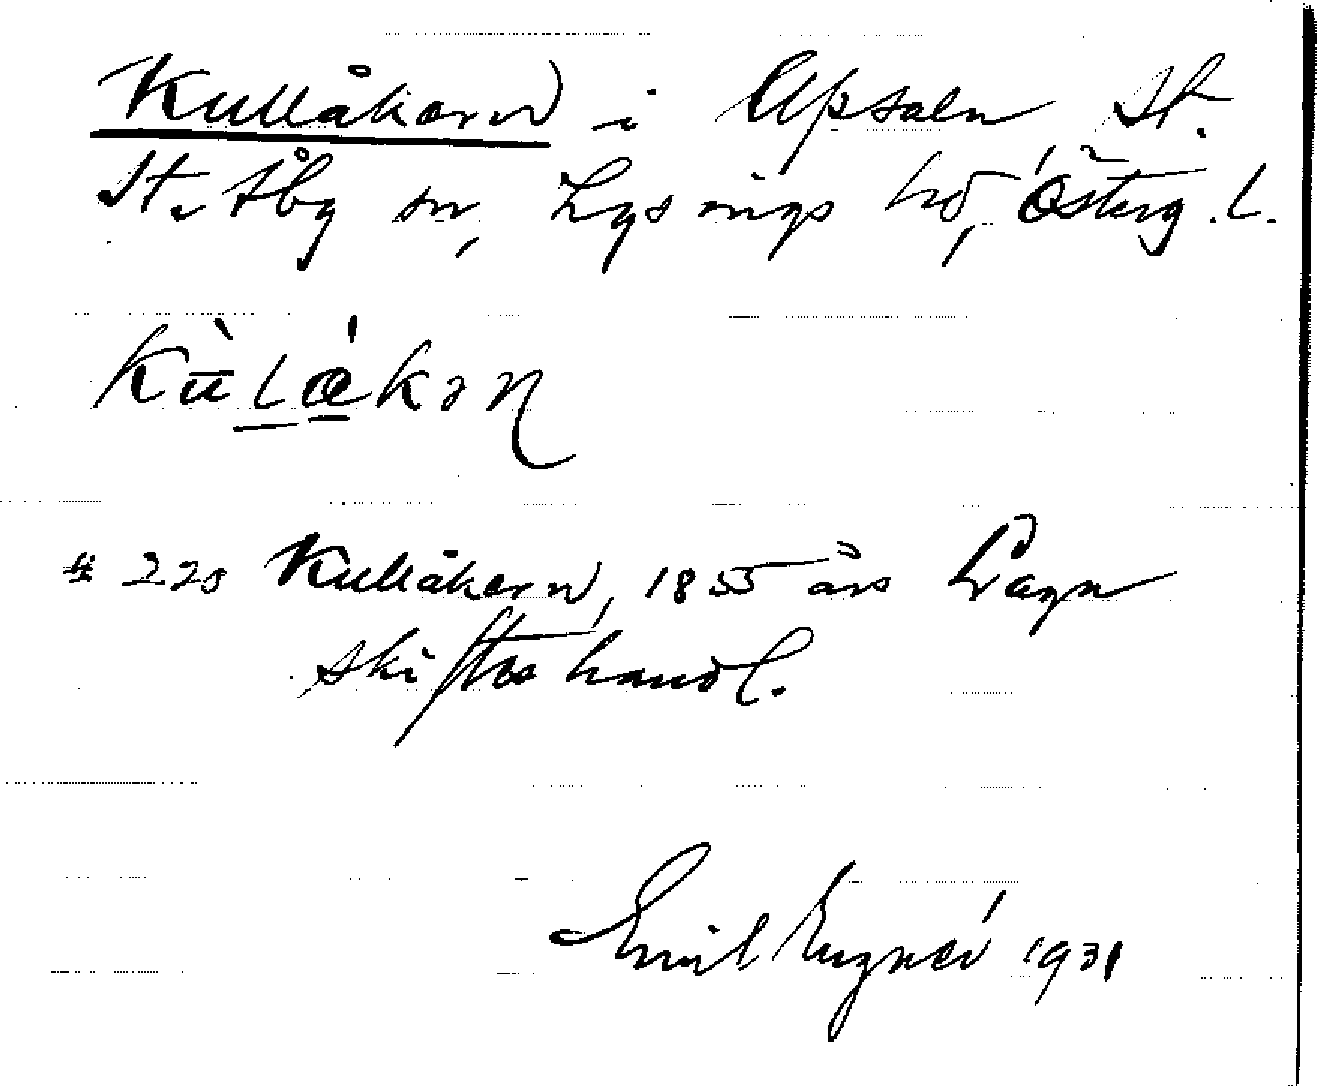 Kullåkern i Upsala St.
St. Åby sn, Lysings hd, Österg. L.
Kùlákən
# 220 Kullåkern, 1855 års Laga
skifteshandl.
Emil 1931